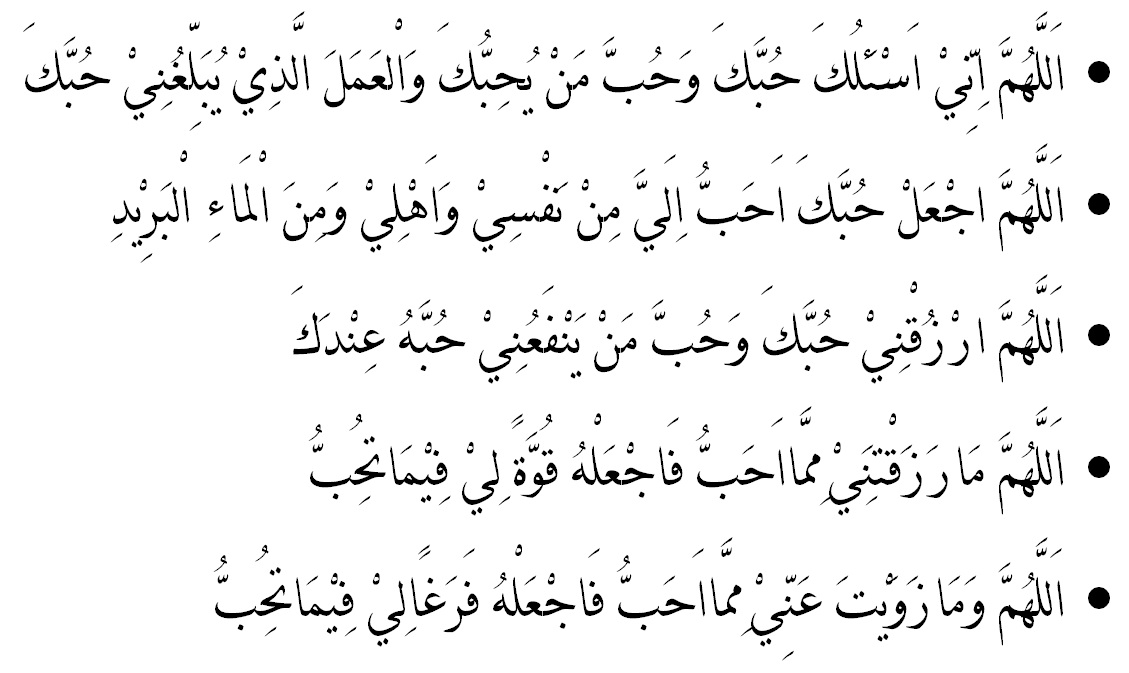 • اَللَّهُمَّ اِنِّيْ اَسْئَلُكَ حُبَّكَ وَحُبَّ مَنْ يُحِبُّكَ وَالْعَمَلَ الَّذِيْ يُبَلِّغُنِيْ حُبَّكَ
• اَللَّهُمَّ اجْعَلْ حُبَّكَ اَحَبُّ اِلَيَّ مِنْ نَفْسِيْ وَاَهْلِيْ وَمِنَ الْمَاءِ الْبَرِيْدِ
• اَللَّهُمَّ ارْزُقْنِيْ حُبَّكَ وَحُبَّ مَنْ يَنْفَعُنِيْ حُبَّهُ عِنْدَكَ
• اَللَّهُمَّ مَا رَزَقْتَنِيْ مِمَّااَحَبُّ فَاجْعَلْهُ قُوَّةً لِيْ فِيْمَاتُحِبُّ
• اَللَّهُمَّ وَمَا زَوَيْتَ عَنِّيْ مِمَّااَحَبُّ فَاجْعَلْهُ فَرَغًالِيْ فِيْمَاتُحِبُّ